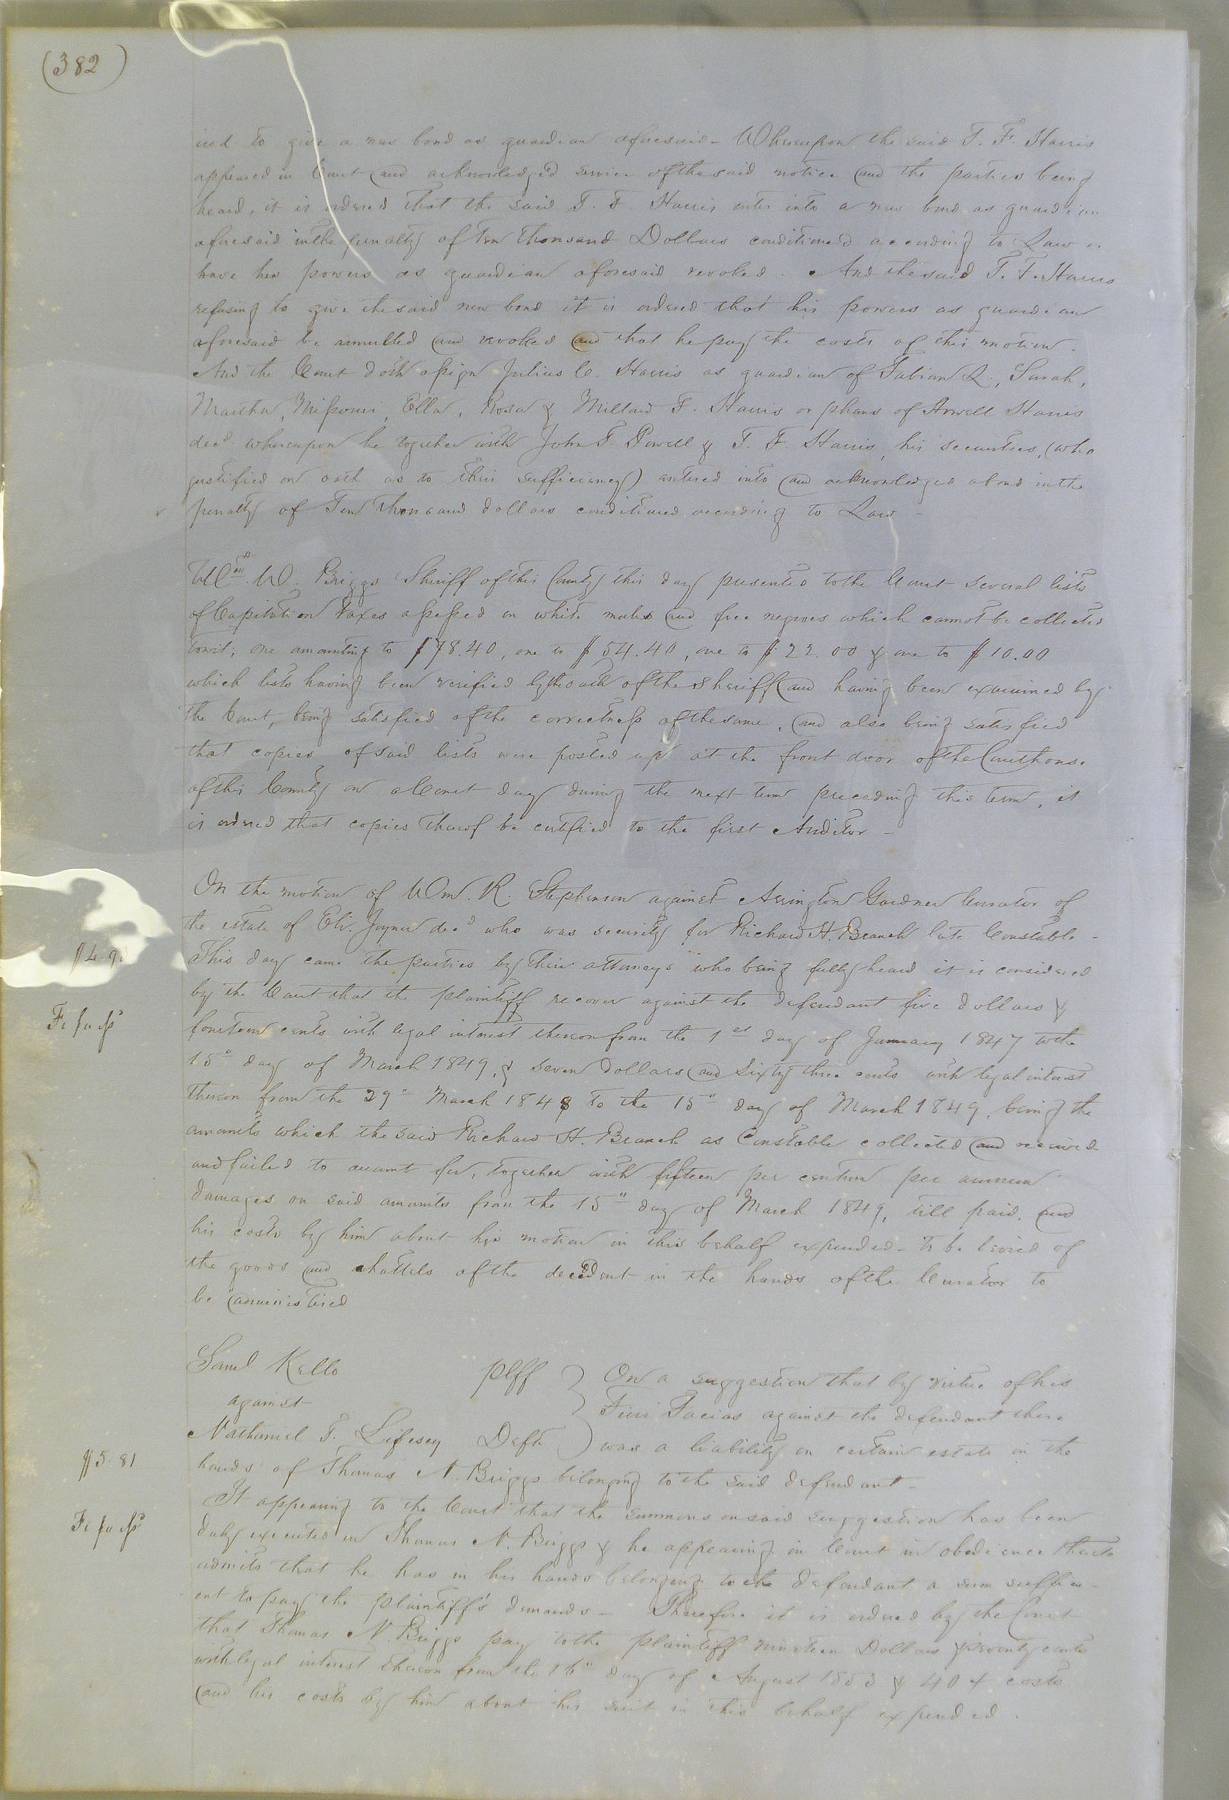 (382)
ired to give a new bond as guardian aforesaid - Whereupon the said T. F. Harris
appeared in Court and acknowledged service of the said notice and the parties being
heard, it is ordered that the said T. F. Harris enter into a new bond as guardian
aforesaid in the penalty of Ten thousand Dollars conditioned according to Law or
have his powers as guardian aforesaid revoked. And the said T. F. Harris
refusing to give the said new bond it is ordered that his powers as guardian
aforesaid be annulled and revoked and that he pay the costs of this motion.
And the Court doth assign Julius C. Harris as guardian of Fabian L., Sarah,
Martha, Missouri, Ella, Rosa & Millard F. Harris orphans of Howell Harris
decd. whereupon he together with John T. Powell & T. F. Harris, his securities, (who
justified on oath as to their sufficiency) entered into and acknowledged a bond in the
penalty of Ten Thousand dollars conditioned according to Law -
W. Briggs Sheriff of this County this day presented to the Court several lists
of Capitation Taxes assessed on white males and free negroes which cannot be collected
towit; one amounting to $78.40, one to $54.40, one to $22.00 & one to $10.00
which lists having been verified by the oath of the Sheriff and having been examined by
the Court, being satisfied of the correctness of the same, and also being satisfied
that copies of said lists were posted up at the front door of the Courthouse
of this County on a Court day during the next term preceding this term, it
is ordered that copies thereof be certified to the first Auditor -
On the motion of Wm. R. Stephenson against Arrington Gardner Curator of
the estate of Eli Joyner decd who was security for Richard H. Branch late Constable -
This day came the parties by their attorneys who being fully heard it is considered
$4.9
by the Court that the plaintiff recover against the defendant five dollars &
Fi fa issd
fourteen cents with legal interest thereon from the 1st day of January 1847 to the
15th day of March 1849, & seven dollars and sixty three cents with legal interest
thereon from the 29th March 1848 to the 15th day of March 1849, being the
amounts which the said Richard H. Branch as Constable collected and received
and failed to account for, together with fifteen per centum per annum
damages on said amounts from the 15th day of March 1849, till paid, and
his costs by him about his motion in this behalf expended - To be levied of
the goods and chattels of the decedent in the hands of the Curator to
be administered
Saml Kello Plff } On a suggestion that by virtue of his
against Fieri Facias against the defendant there
Nathaniel T. Lifesey Deft } was a liability on certain estate in the
$5.81
hands of Thomas N. Briggs belonging to the said defendant -
It appearing to the Court that the summons on said suggestion has been
Fi fa issd
duly executed on Thomas N. Briggs & he appearing in Court in obedience thereto
admits that he has in his hands belonging to the defendant a sum suffici-
ent to pay the plaintiff's demands - Therefore it is ordered by the Court
that Thomas N. Briggs pay to the plaintiff nineteen Dollars & seventy cents
with legal interest thereon from the 16th day of August 1853 & 404 costs
and his costs by him about his suit in this behalf expended.